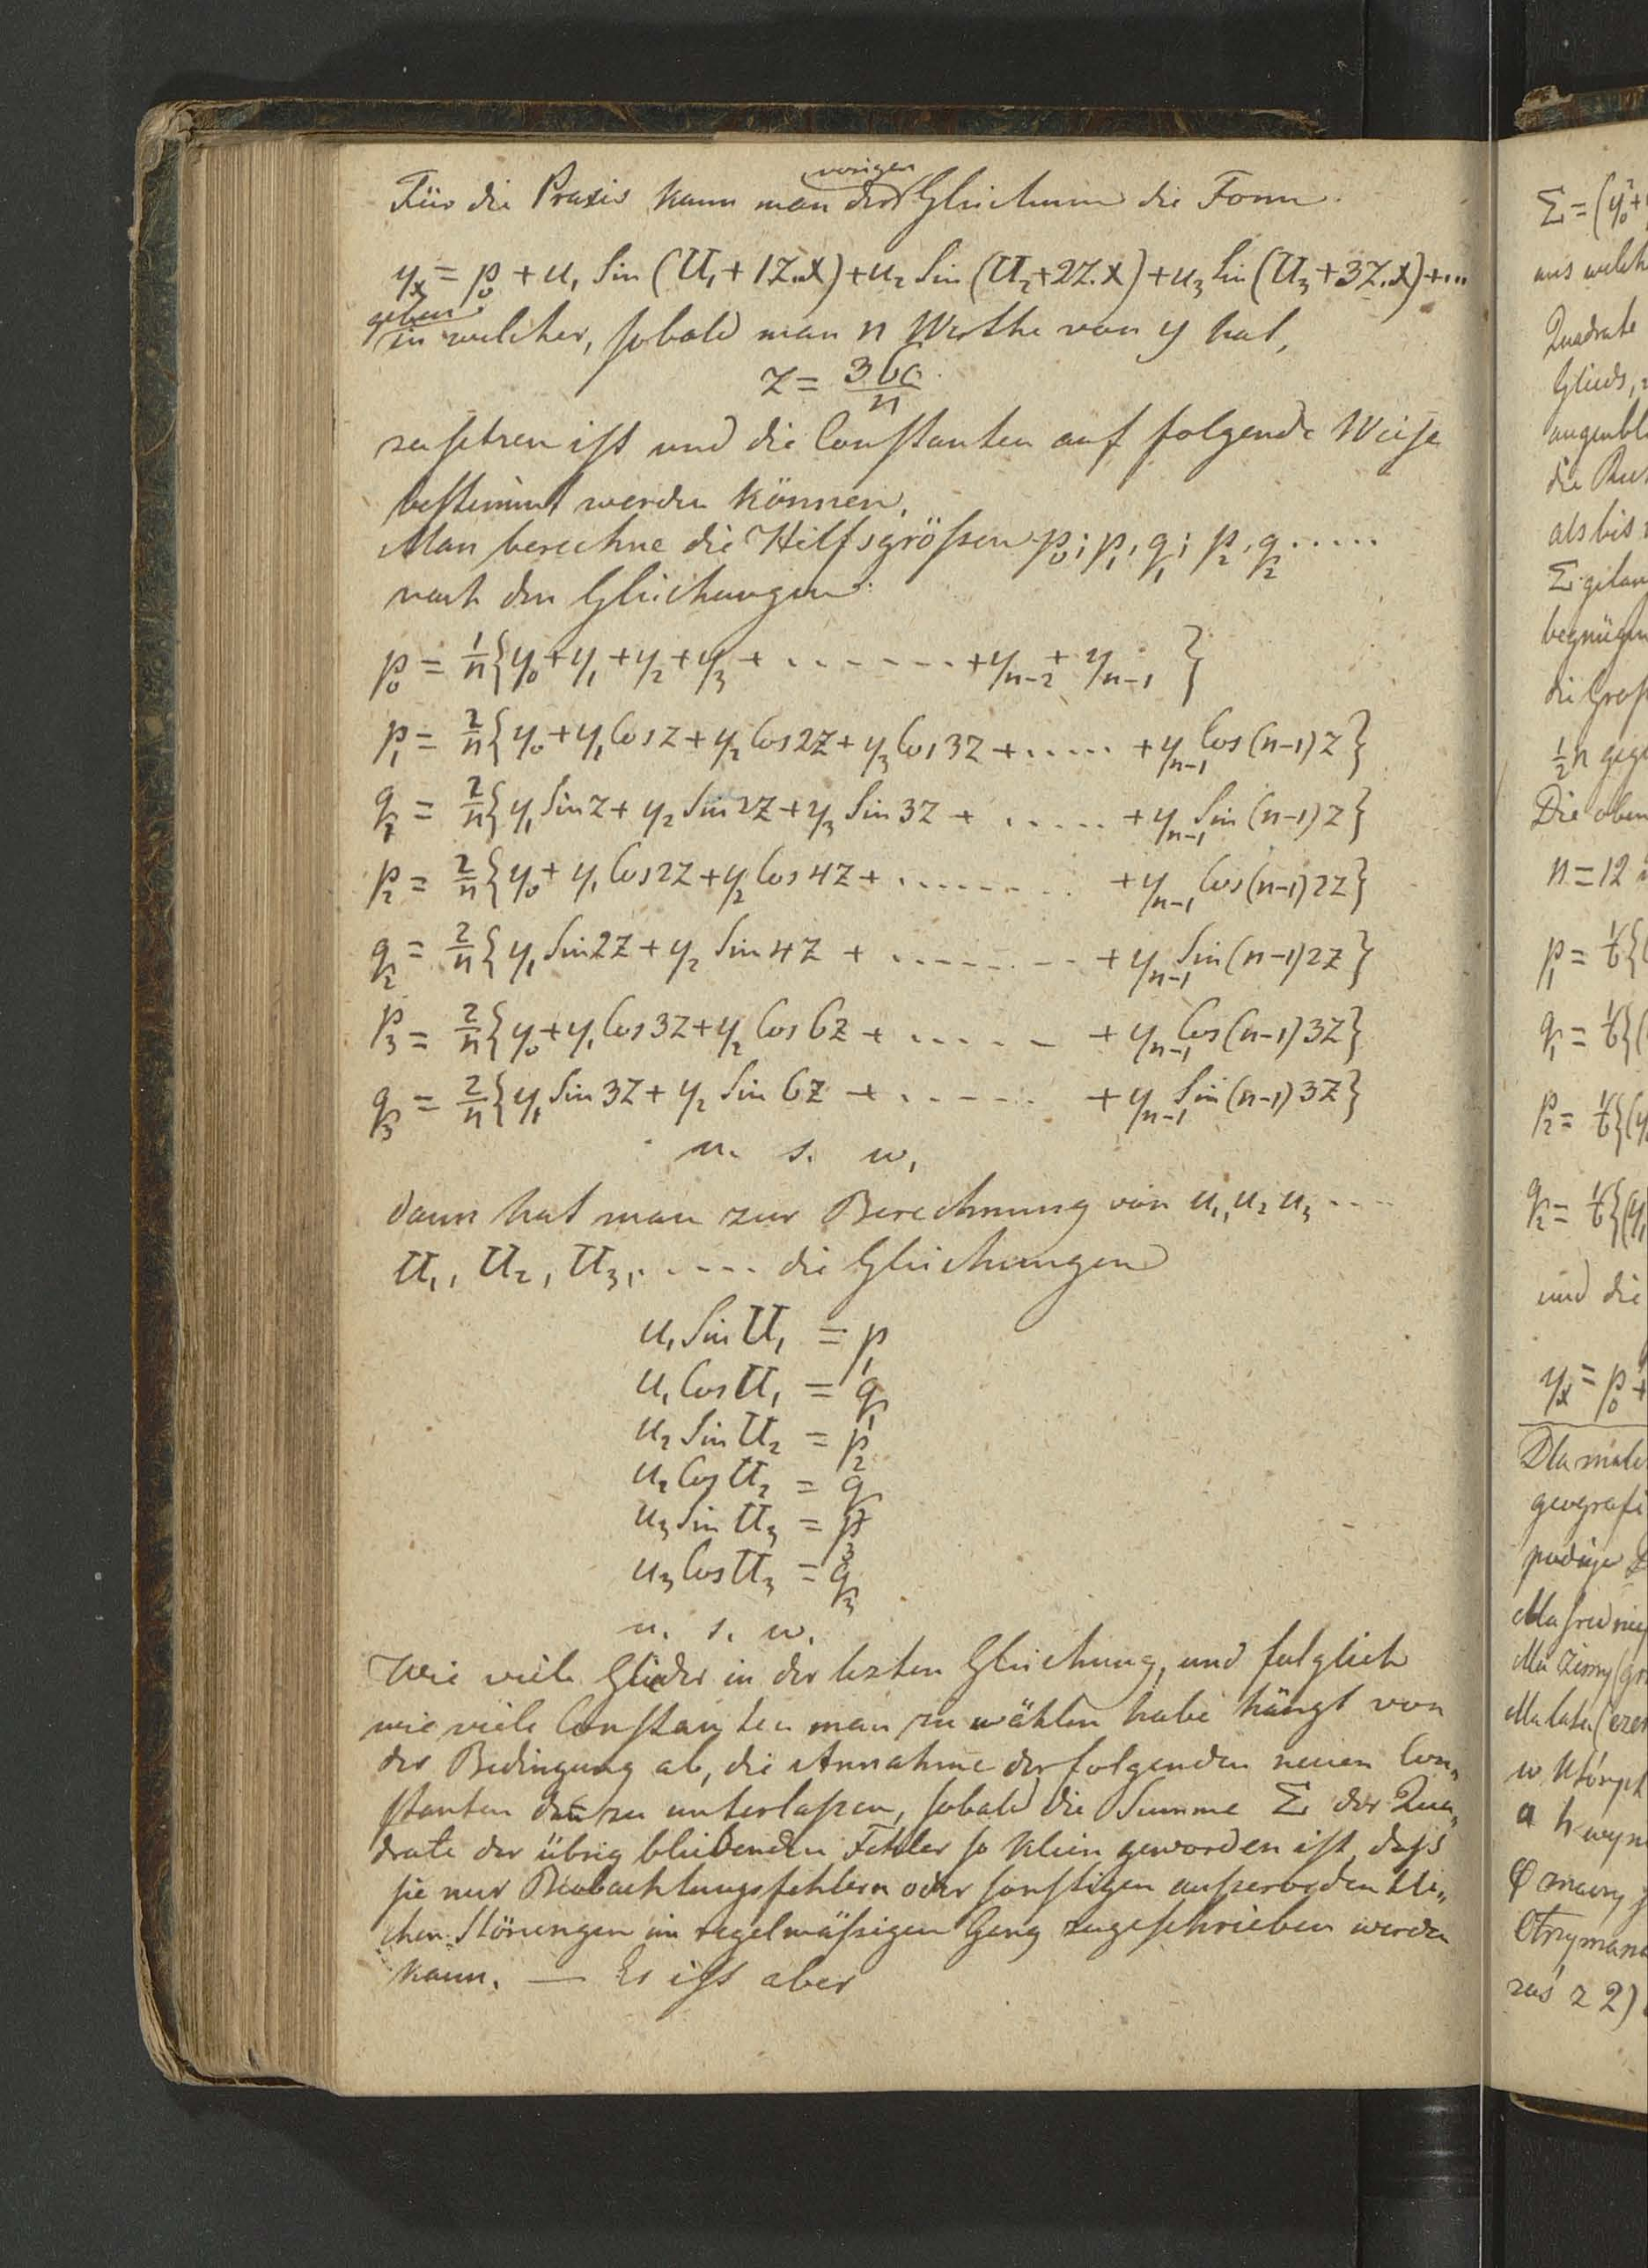 Für die Praxis kann man der vorigen Gleichung die Form
y_x = p_0 + u_1 Sin (U_1 + 1Z.x) + u_2 Sin (U_2 + 2Z.x) + u_3 Sin (U_3 + 3Z.x) + ...
geben
in welcher, sobald man n Werthe von y hat,
Z = 360/n
zu setzen ist und die Constanten auf folgende Weise
bestimmt werden können.
Man berechne die Hilfsgrößen p_0; p_1, q_1; p_2, q_2 .....
nach den Gleichungen:
p_0 = 1/n {y_0 + y_1 + y_2 + y_3 + ........ + y_{n-2} + y_{n-1}}
p_1 = 2/n {y_0 + y_1 Cos Z + y_2 Cos 2Z + y_3 Cos 3Z + ..... + y_{n-1} Cos (n-1) Z}
q_1 = 2/n {y_1 Sin Z + y_2 Sin 2Z + y_3 Sin 3Z + ..... + y_{n-1} Sin (n-1) Z}
p_2 = 2/n {y_0 + y_1 Cos 2Z + y_2 Cos 4Z + ........ + y_{n-1} Cos (n-1) 2Z}
q_2 = 2/n {y_1 Sin 2Z + y_2 Sin 4Z + ........ + y_{n-1} Sin (n-1) 2Z}
p_3 = 2/n {y_0 + y_1 Cos 3Z + y_2 Cos 6Z + ..... + y_{n-1} Cos (n-1) 3Z}
q_3 = 2/n {y_1 Sin 3Z + y_2 Sin 6Z + ..... + y_{n-1} Sin (n-1) 3Z}
u. s. w.
dann hat man zur Berechnung von u_1, u_2 u_3 ....
U_1, U_2, U_3, ..... die Gleichungen
u_1 Sin U_1 = p_1
u_1 Cos U_1 = q_1
u_2 Sin U_2 = p_2
u_2 Cos U_2 = q_2
u_3 Sin U_3 = p_3
u_3 Cos U_3 = q_3
u. s. w.
Wie viele Glieder in der lezten Gleichung, und folglich
wie viele Constanten man zu wählen habe hängt von
der Bedingung ab, die Annahme der folgenden neuen Con„
stanten zu unterlaßen, sobald die Summe Σ der Qua„
drate der übrig bleibenden Fehler so klein geworden ist, daß
sie nur Beobachtungsfehlern oder sonstigen außerordentli„
chen Störungen im regelmäßigen Gang zugeschrieben werden
kann. — Es ist aber
Σ = (y_0^2 +
aus welch
Quadrate
Glieds,
augenbl
als bis
begnügen
die Groß
1/2 n gege
Die oben
n = 12
p_1 = 1/6 {
q_1 = 1/6 {(
p_2 = 1/6 {(y
q_2 = 1/6 {(y
und die
y_x = p_0 +
Dla
geografi
Dla